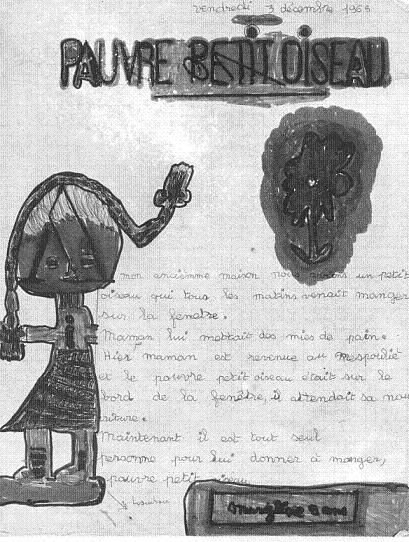 vendredi 3 décembre 1968
PAUVRE PETIT OISEAU
mon ancienne maison nous avions un petit
oiseau qui tous les matins venait manger
sur la fenêtre.
Maman lui mettait des mies de pain.
Hier maman est revenue au mespoulié
et le pauvre petit oiseau était sur le
bord de la fenêtre, il attendait sa nou
riture.
Maintenant il est tout seul
personne pour lui donner à manger,
pauvre petit oiseau